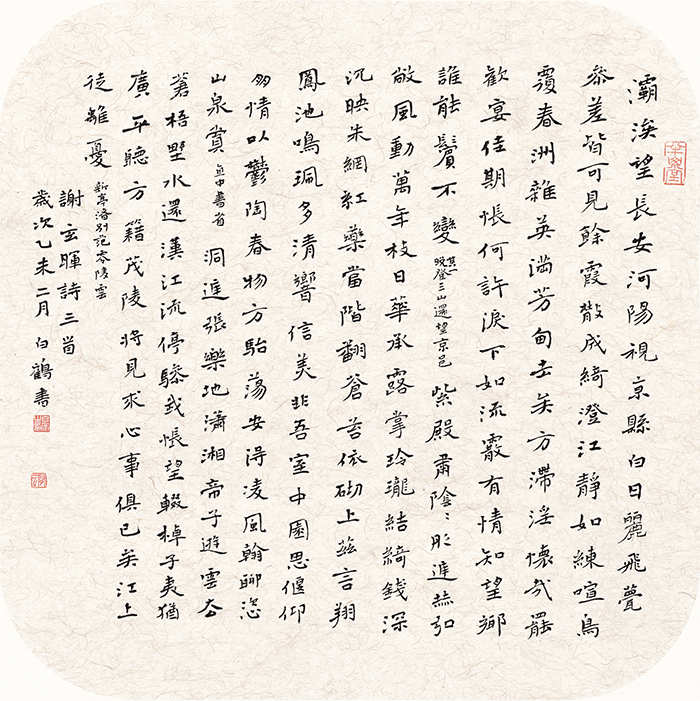 灞涘望長安河陽視京縣白日麗飛甍
參差皆可見餘霞散成綺澄江靜如練喧鳥
覆春洲雜英滿芳甸去矣方滯淫懷哉罷
歡宴佳期悵何許淚下如流霰有情知望鄉
誰能鬢不變晚登三山還望京邑紫殿肅陰〻彤庭赫弘
敞風動萬年枝日華承露掌玲瓏結綺錢深
沉映朱網紅藥當階翻蒼苔依砌上茲言翔
鳳池鳴珮多清響信美非吾室中園思偃仰
朋情以鬱陶春物方駘蕩安得凌風翰聊恣
山泉賞直中書省洞庭張樂地瀟湘帝子遊雲去
蒼梧野水還漢江流停驂我悵望輟棹子夷猶
廣平聽方籍茂陵將見求心事俱已矣江上
徒離憂新亭渚別范零陵雲
謝玄暉詩三首
歲次乙未二月白鶴書